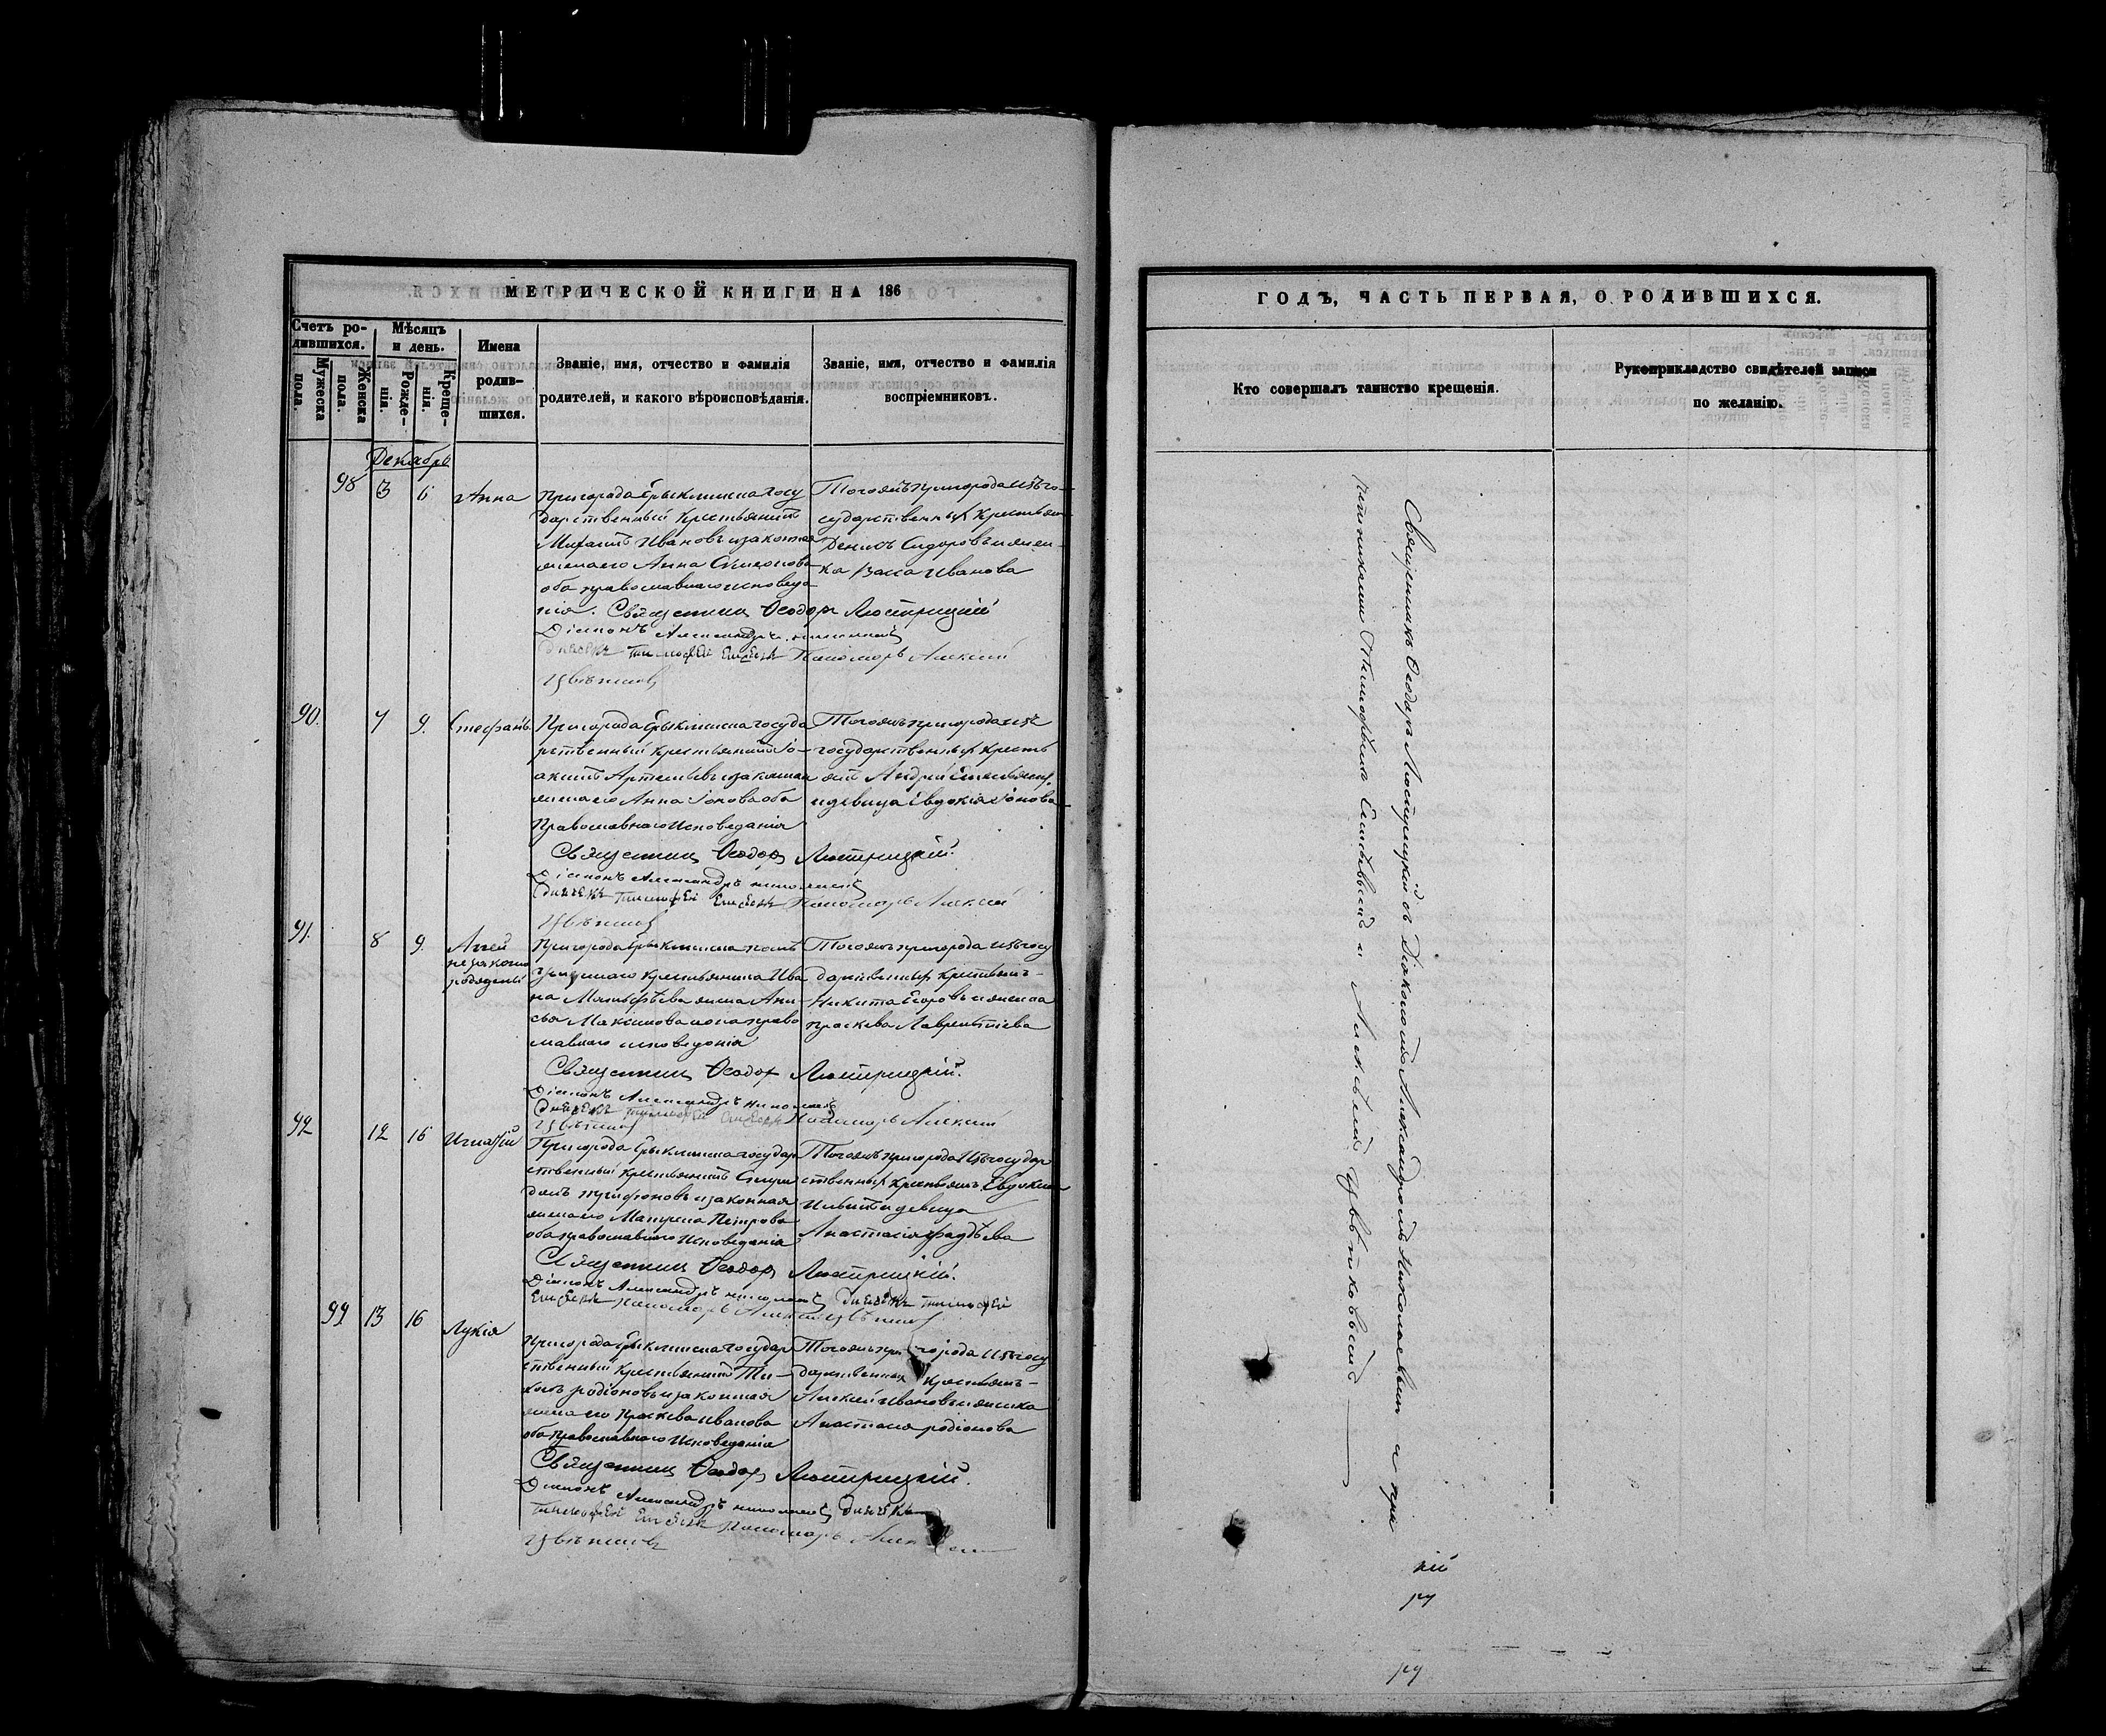 МЕТРИЧЕСКОЙ КНИГИ НА 186
Счетъ ро-
дившихся.
Мужеска
пола.
Женска
пола.
Мѣсяцъ
и день.
Рожде-
нія.
Креще-
нія.
Имена
родив-
шихся.
Званіе, имя, отчество и фамилія
родителей, и какого вѣроисповѣданія.
Званіе, имя, отчество и фамилія
воспріемниковъ.
Декабрь
98 3 6 Анна
Пригорода Ерыклинска Госу
дарственный крестьянинъ
Михаилъ Ивановъ и законная
жена его Анна Симеонова
оба православнаго исповеда
нія. Священник Ѳеодор Люстрицкій
Діаконъ Александръ Николаевъ
Дьячекъ Тимофей Пономарь Алексій
Цвѣтков
Тогожъ пригорода изъ го-
сударственных крестьян
Денисъ Сидоровъ и жен-
ка Иванова
90. 7 9. Стефанъ
Пригорода Ерыклинска госуда
рственный крестьянинъ Іо-
акимъ Артемьевъ и законная
жена его Анна Іонова оба
Православнаго Исповеданія
Священник Ѳеодор Люстрицкій.
Діаконъ Александръ Николаевъ
Дьячекъ Тимофей Пономарь Алексій
Цвѣтков
Тогожъ пригорода изъ
государственных кресть
янъ Андрей
и девица Евдокія Іонова
91. 8 9. Аггей
незаконно
рожденый
Пригорода Ерыклинска
крестьянина Ива
на Матьфѣева жена Ани-
сья Максимова она право
славнаго исповеданія
Священник Ѳеодор Люстрицкій.
Діаконъ Александръ Николаевъ
Дьячекъ Тимофей Пономарь Алексій
Цвѣтков
Тогожъ пригорода изъ госу
дарственных крестьянъ-
Никита Егоровъ и женка
Праскева Лаврентіева
92 12 16 Игнатій
Пригорода Ерыклинска государ
ственный крестьянинъ Спири
донъ и законная
жена его Матрена Петрова
оба православнаго Исповеданія
Священник Ѳеодор Люстрицкій.
Діаконъ Александръ Николаевъ Дьячекъ Тимофей
Пономарь Алексій Цвѣтков
Тогожъ пригорода Изъ государ
ственных крестьянъ Евдоким
и девица
Анастасія Фадѣева
99 13 16 Лукія
Пригорода Ерыклинска государ
ственный Крестьянинъ Ти-
хонъ Родіоновъ и законная
жена его Праскева Иванова
оба Православнаго Исповеданія
Священник Ѳеодор Люстрицкій.
Діаконъ Александръ Николаевъ Дьячекъ
Тимофей Пономарь Алексей
Цвѣтков
Тогожъ пригорода Изъ госу
дарственных крестьянъ-
Алексей Ивановъ и женка
Анастасія Родіонова
ГОДЪ, ЧАСТЬ ПЕРВАЯ, О РОДИВШИХСЯ.
Кто совершалъ таинство крещенія.
Рукоприкладство свидѣтелей записи
по желанію.
Священникъ Ѳеодоръ Люстрицкій съ Діакономъ Александромъ Николаевымъ и при
четниками Тимофѣемъ и Алексѣемъ Цвѣтковымъ